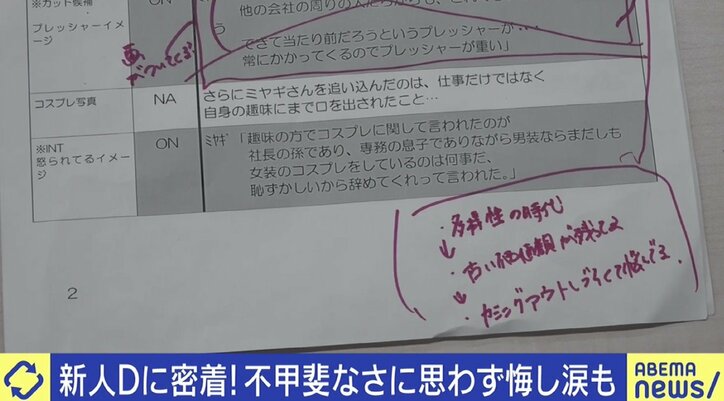 ※カット候補
プレッシャーイメージ
ON
他の会社の周りの人たちからも、これ
う
できて当たり前だろうというプレッシャーが
常にかかってくるのでプレッシャーが重い」
コスプレ写真
NA
さらにミヤギさんを追い込んだのは、仕事だけではなく
自身の趣味にまで口を出されたこと…
※INT
怒られてるイメージ
ON
ミヤギ「趣味の方でコスプレに関して言われたのが
社長の孫であり、専務の息子でありながら男装ならまだしも
女装のコスプレをしているのは何事だ、
恥ずかしいから辞めてくれって言われた。」
・多様性の時代
↓
・古い価値観が残ってる
↓
・カミングアウトしづらくて悩んでる。
2
新人Dに密着!不甲斐なさに思わず悔し涙も
ABEMA
NEWS/